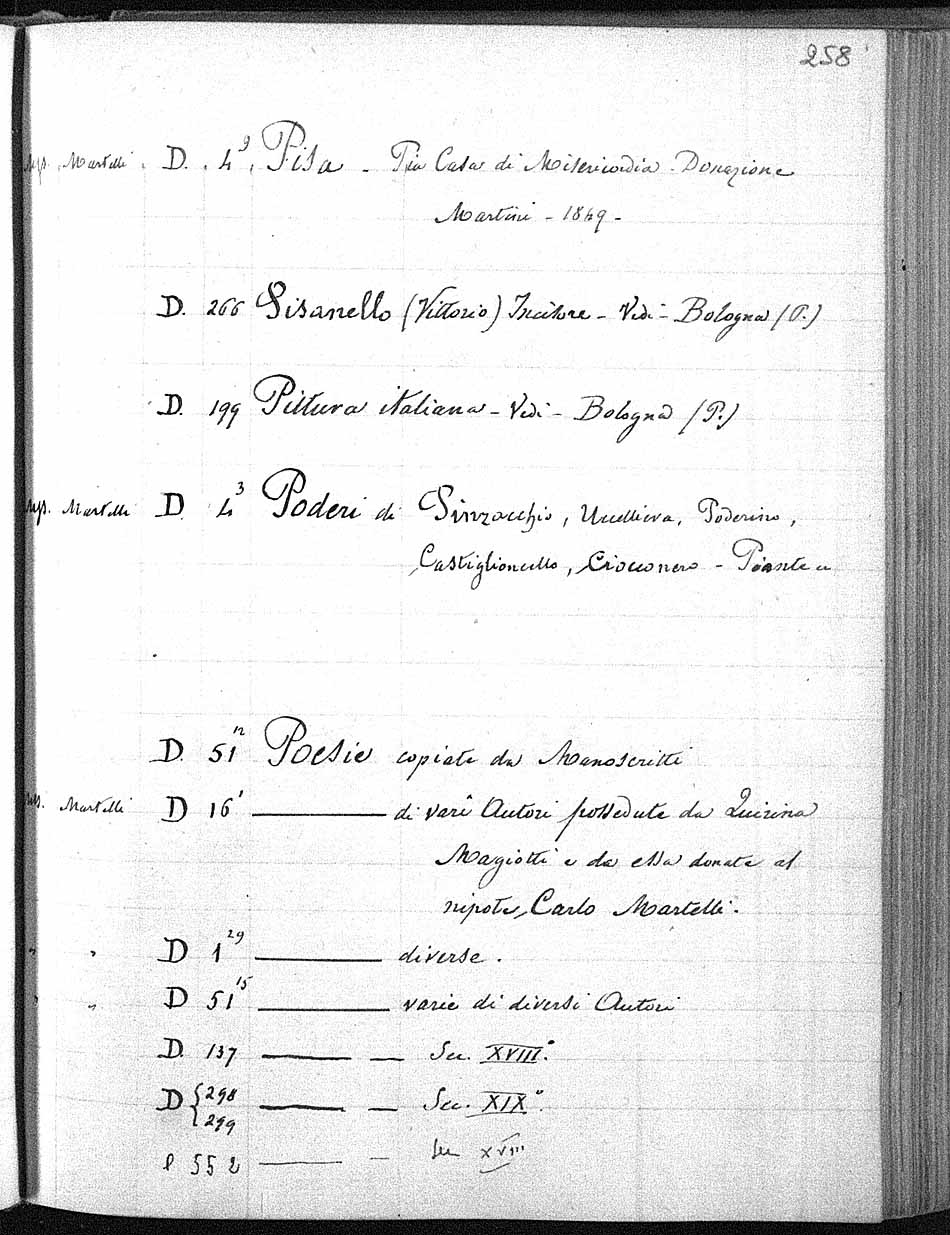 258
Mss. Martelli. D. 4⁹. Pisa - Pia Casa di Misericordia - Donazione
Martini - 1849 -
D. 266 Pisanello (Vittorio) Incisore - Vedi - Bologna (P.)
D. 199 Pittura italiana - Vedi - Bologna (P.)
Mss. Martelli D. 4³ Poderi di Uccelliera, Poderino,
Castiglioncello, - Piante
D. 51¹² Poesie copiate da Manoscritti
Mss. Martelli D 16¹ —— di varî Autori possedute da Quirina
Magiotti e da essa donate al
nipote, Carlo Martelli.
" " D 1²⁹ —— diverse.
" " D 51¹⁵ —— varie di diversi Autori
D. 137 —— — Sec. XVIII°.
D { 298 —— — Sec. XIX°.
299
552 —— — Sec XVIII